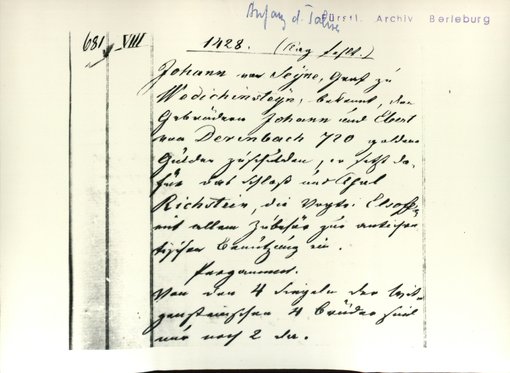 Anfang d. Jahres
Fürstl. Archiv Berleburg
681 VIII 1428. (Tag fehlt.)
Johann von Seyne, Graf zu
Widichinsteyn, bekennt, den
Gebrüdern Johann und Ebert
von Derenbach 720 goldene
Gulden zuschulden, er setzt da-
für das Schloß und Thal
Richstein, die Vogtei Elsoff
mit allem Zubehör zur antichre-
tischen Benützung ein.
Pergament.
Von den 4 Siegeln der Witt-
gensteinischen 4 Brüder sind
nur noch 2 da.